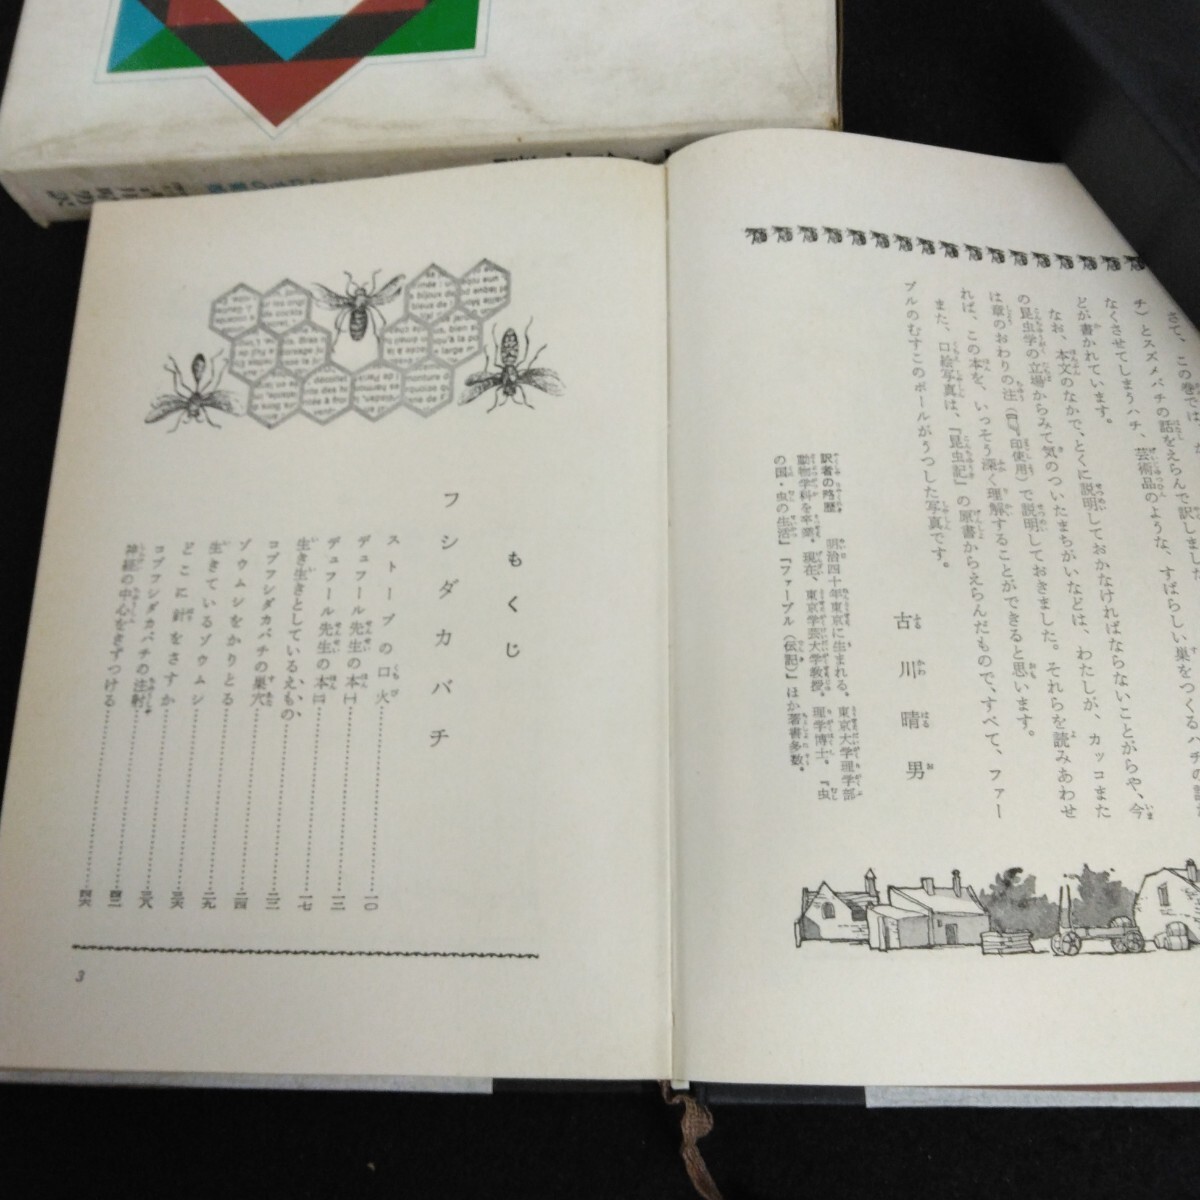 チ）とスズメバチの話をえらんで訳しました
なくさせてしまうハチ、芸術品のような、すばらしい巣をつくるハチの話な
どが書かれています。
なお、本文のなかで、とくに説明しておかなければならないことがらや、今
の昆虫学の立場からみて気のついたまちがいなどは、わたしが、カッコまた
は章のおわりの注（印使用）で説明しておきました。それらを読みあわせ
れば、この本を、いっそう深く理解することができると思います。
また、口絵写真は、『昆虫記』の原書からえらんだもので、すべて、ファー
ブルのむすこのポールがうつした写真です。
古川晴男
訳者の略歴　明治四十年東京に生まれる。東京大学理学部
動物学科を卒業。現在、東京学芸大学教授。理学博士。『虫
の国・虫の生活』『ファーブル（伝記）』ほか著書多数。
もくじ
フシダカバチ
ストーブの口火……一〇
デュフール先生の本㈠……一二
デュフール先生の本㈡……一七
生き生きとしている、えもの……二二
コブフシダカバチの巣穴……二四
ゾウムシをかりとる……二九
生きているゾウムシ……三六
どこに針をさすか……三八
コブフシダカバチの注射……四二
神経の中心をきずつける……四六
3